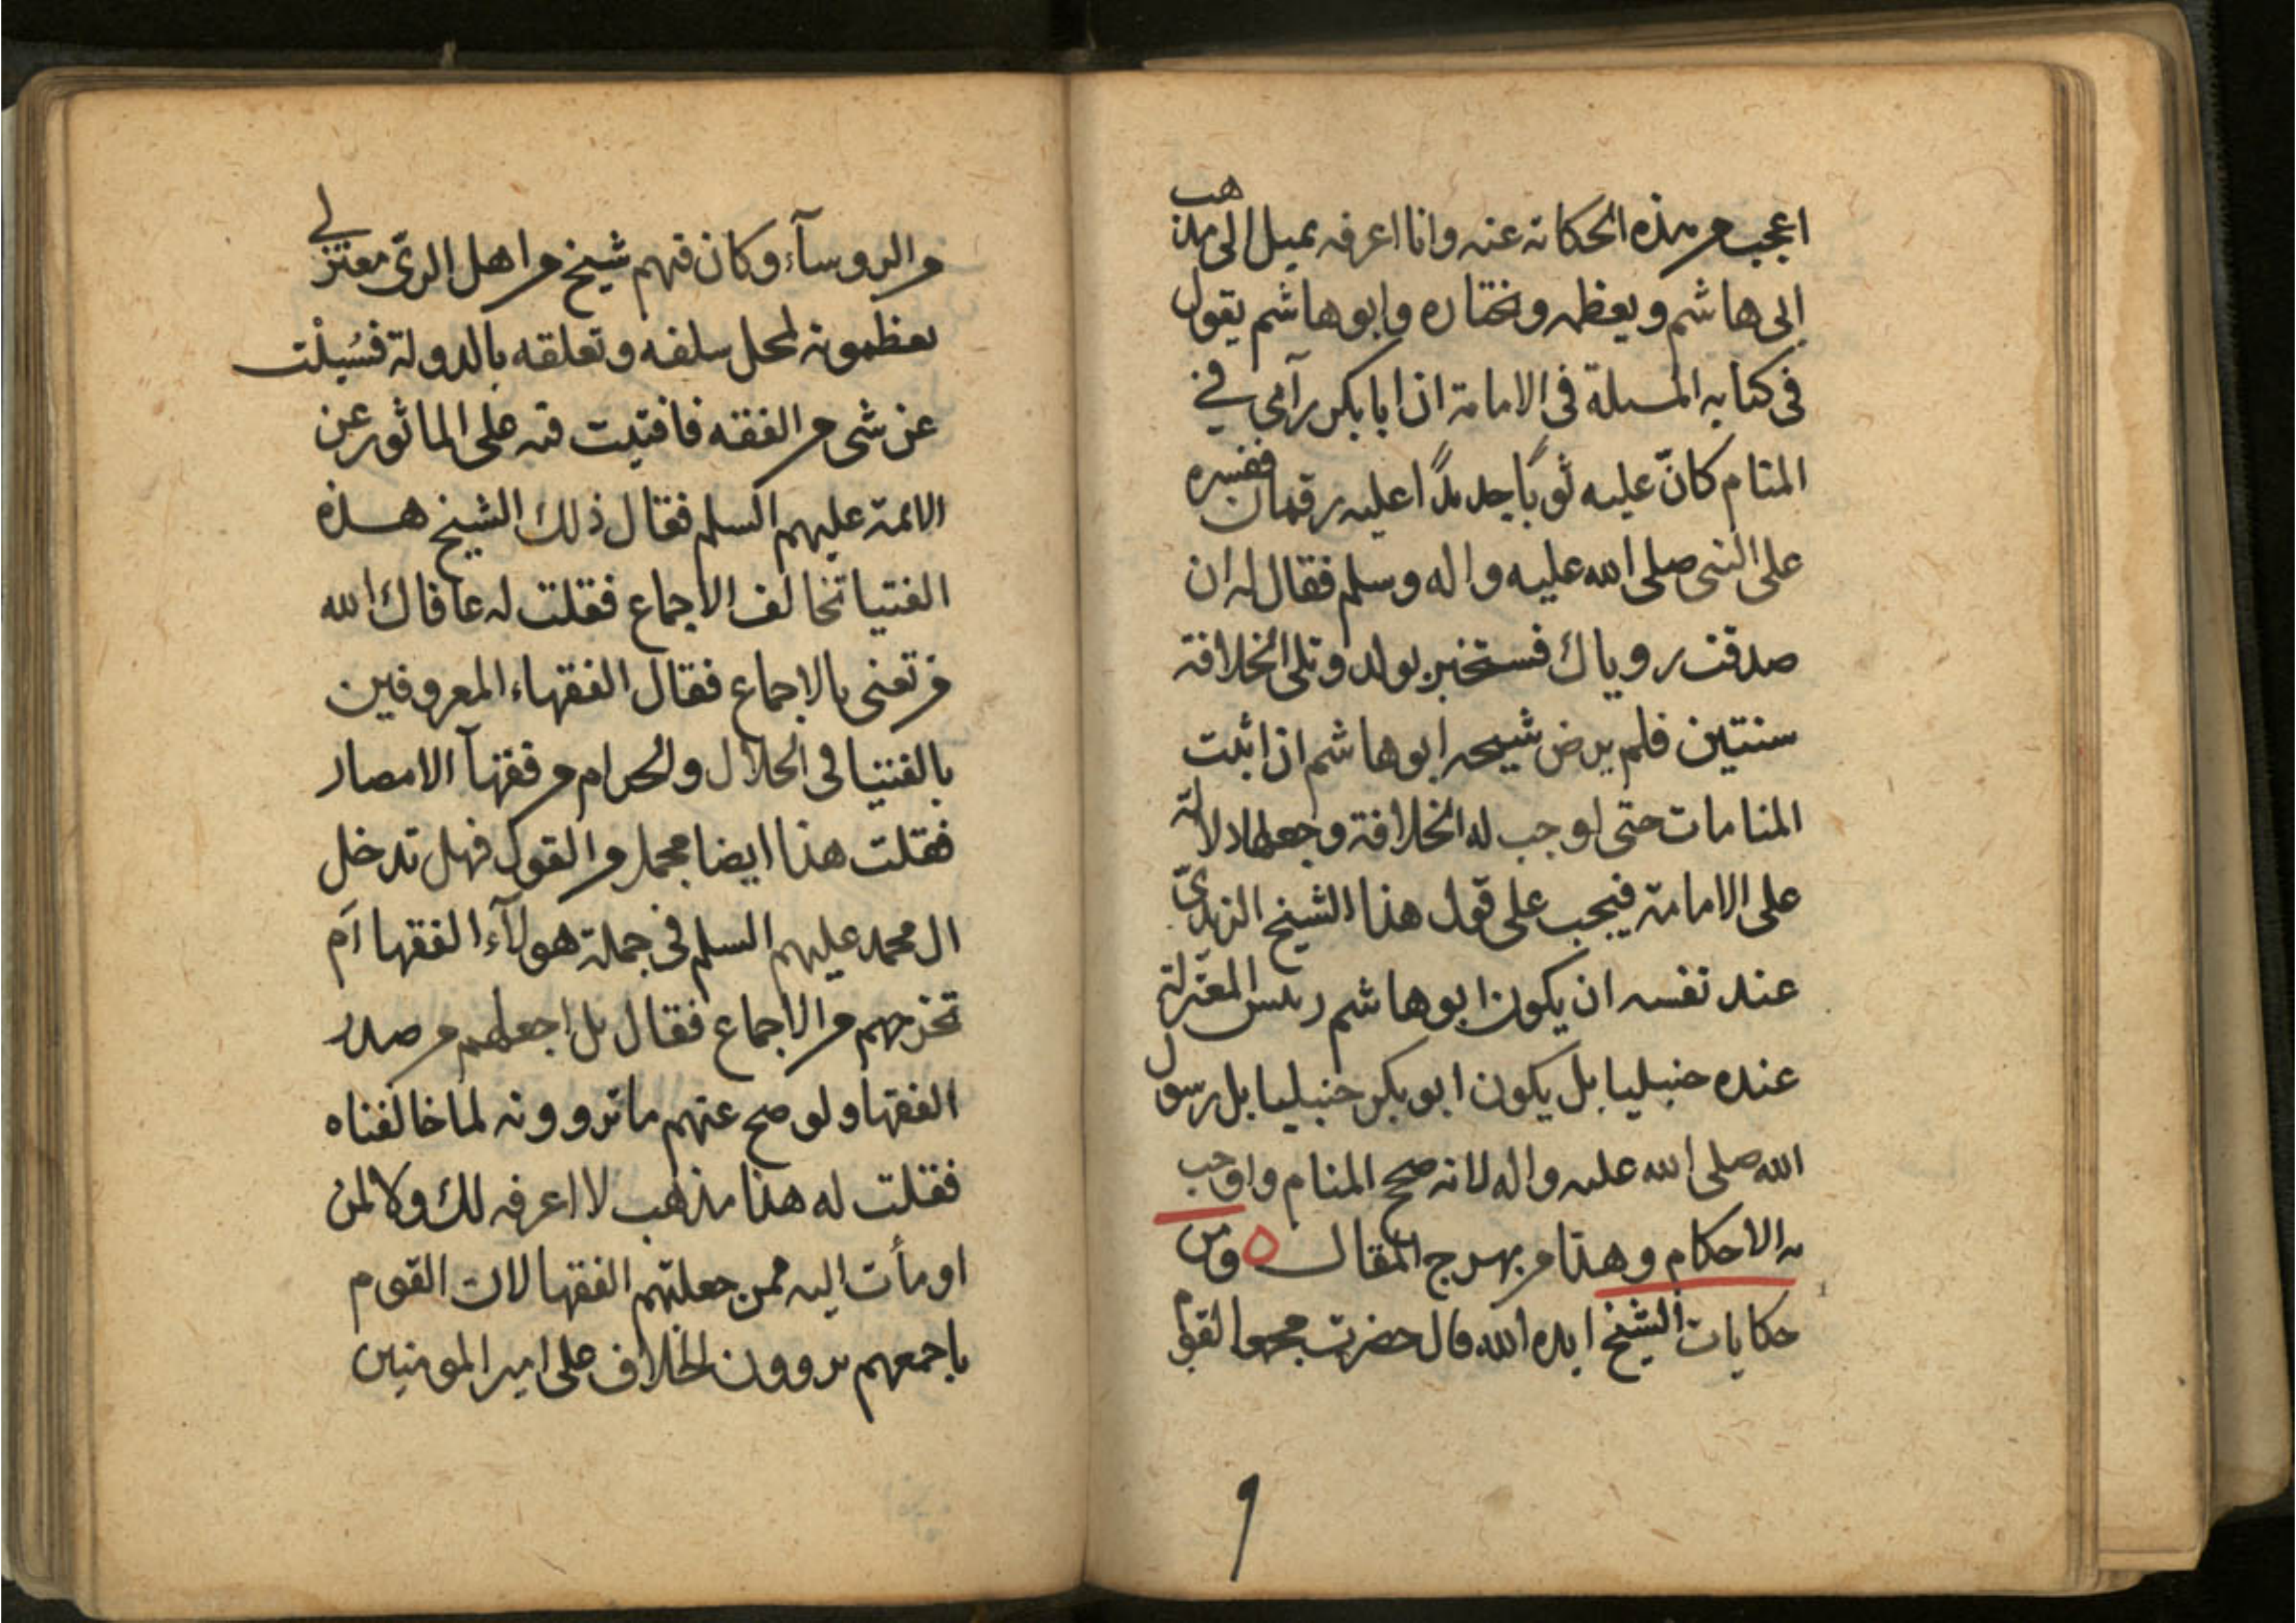 اعجب من هذه الحكاية عنه وانا اعرفه يميل الى مذهب
ابى هاشم ويعظمه ويختاره وابو هاشم يقول
فى كتابه المسئلة فى الامامة ان ابا بكر رآى في
المنام كانّ عليه ثوبًا جديدًا عليه رقمان ففسره
على النبى صلى الله عليه واله وسلم فقال له ان
صدقت روياك فستخبر بولد وتلى الخلافة
سنتين فلم يرض شيخه ابو هاشم ان اثبت
المنامات حتى اوجب له الخلافة وجعلها دلالة
على الامامة فيجب على قول هذا الشيخ الزيدىّ
عند نفسه ان يكون ابو هاشم رئيس المعتزلة
عنده حنبليا بل يكون ابو بكر حنبليا بل رسول
الله صلى الله عليه واله لانه صحح المنام واوجب
به الاحكام وهذا من بهرج المقال ومن
حكايات الشيخ ايده الله قال حضرت مجمعا لقوم
من الروسآء وكان فيهم شيخ من اهل الرىّ معتزلي
يعظمونه لمحل سلفه وتعلقه بالدولة فسُيلْت
عن شى من الفقه فافتيت فيه على الماثور عن
الائمة عليهم السلم فقال ذلك الشيخ هذه
الفتيا تخالف الاجماع فقلت له عافاك الله
من تعنى بالاجماع فقال الفقهاء المعروفين
بالفتيا فى الحلال والحرام من فقهآ الامصار
فقلت هذا ايضا مجمل من القول فهل تدخل
ال محمد عليهم السلم فى جملة هولآء الفقها اَم
تخرجهم من الاجماع فقال بل اجعلهم من صدر
الفقها ولو صح عنهم ما تروونه لما خالفناه
فقلت له هذا مذهب لا اعرفه لك ولا لمن
اومأت اليه ممن جعلتهم الفقها لان القوم
باجمعهم يروون الخلاف على امير المومنين
٩